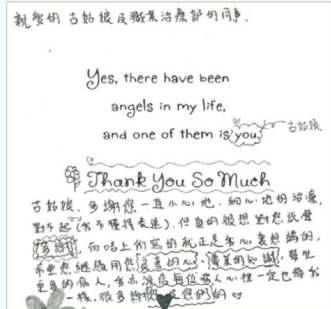 親愛的 古姑娘 及職業治療部的同事.
Yes, there have been
angels in my life,
and one of them is you.
古姑娘
Thank You So Much
古姑娘, 多謝您一直小心地、細心地的治療,
對不起(我不懂得表達), 但真的很想對您說聲
多謝, 而咭上所寫的就正是我心裏想講的,
希望您繼續用您良善的心, 幫忙
更多的病人, 我亦深信每位病人心裡一定已像我
一樣, 很多謝您及您們的